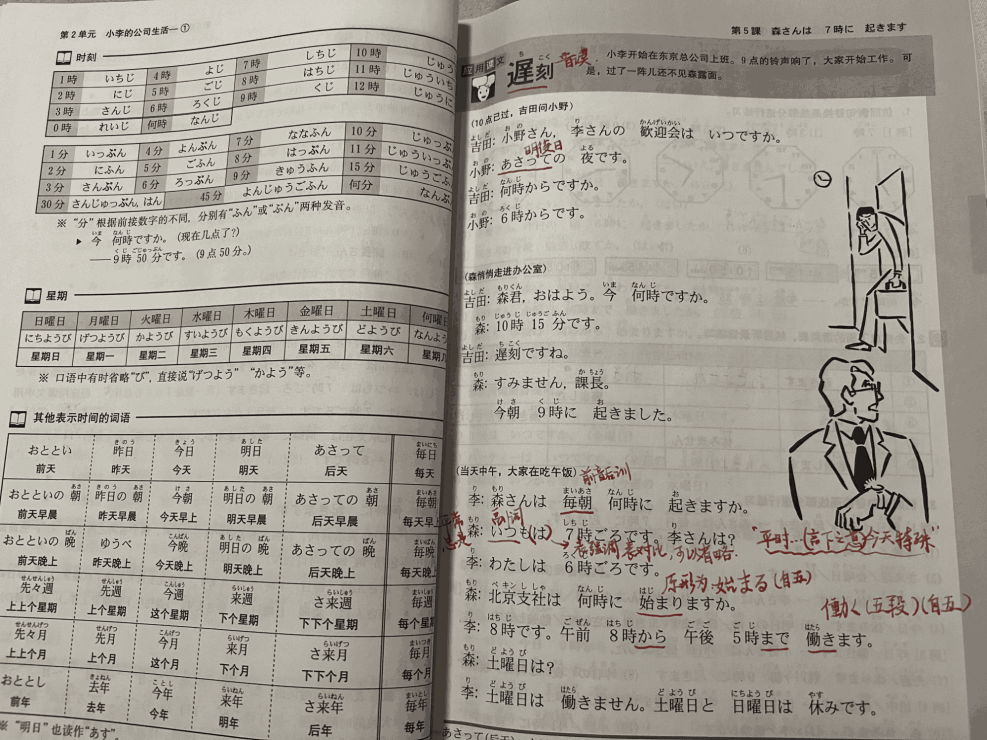 第2单元 小李的公司生活一①
时刻
1時 いちじ 4時 よじ 7時 しちじ 10時 じゅう
2時 にじ 5時 ごじ 8時 はちじ 11時 じゅういち
3時 さんじ 6時 ろくじ 9時 くじ 12時 じゅうに
0時 れいじ 何時 なんじ
1分 いっぷん 4分 よんぷん 7分 ななふん 10分 じゅっぷ
2分 にふん 5分 ごふん 8分 はっぷん 11分 じゅういっぷ
3分 さんぷん 6分 ろっぷん 9分 きゅうふん 15分 じゅうごふ
30分 さんじゅっぷん,はん 45分 よんじゅうごふん 何分 なんぷ
※ “分”根据前接数字的不同,分别有“ふん”或“ぷん”两种发音。
▶ 今 何時ですか。(现在几点了?)
——9時50分です。(9点50分。)
星期
日曜日 月曜日 火曜日 水曜日 木曜日 金曜日 土曜日 何曜
にちようび げつようび かようび すいようび もくようび きんようび どようび なんよう
星期日 星期一 星期二 星期三 星期四 星期五 星期六 星期
※ 口语中有时省略“び”,直接说“げつよう” “かよう”等。
其他表示时间的词语
おととい 昨日 今日 明日 あさって 毎日
前天 昨天 今天 明天 后天 每天
おとといの朝 昨日の朝 今朝 明日の朝 あさっての朝 毎朝
前天早晨 昨天早晨 今天早上 明天早晨 后天早晨 每天早上
おとといの晩 ゆうべ 今晩 明日の晩 あさっての晩 毎晩
前天晚上 昨天晚上 今天晚上 明天晚上 后天晚上 每天晚上
先々週 先週 今週 来週 さ来週 毎週
上上个星期 上个星期 这个星期 下个星期 下下个星期 每个星
先々月 先月 今月 来月 さ来月 毎月
上上个月 上个月 这个月 下个月 下下个月 每个月
おととし 去年 今年 来年 さ来年 毎年
前年 去年 今年 明年 后年 每年
※ “明日”也读作“あす”。
第5課 森さんは 7時に 起きます
应用课文 遅刻 音读
小李开始在东京总公司上班。9点的铃声响了,大家开始工作。可
是,过了一阵儿还不见森露面。
(10点已过,吉田问小野)
吉田: 小野さん, 李さんの 歓迎会は いつですか。
明後日
小野: あさっての 夜です。
吉田: 何時からですか。
小野: 6時からです。
(森悄悄走进办公室)
吉田: 森君, おはよう。今 何時ですか。
森: 10時15分です。
吉田: 遅刻ですね。
森: すみません, 課長。
今朝 9時に 起きました。
(当天中午,大家在吃午饭) 前音后训
李: 森さんは 毎朝 何時に 起きますか。
森: いつも(は) 7時ごろです。李さんは?
表强调 表对比, 可以省略.
“平时…言下之意今天特殊”
李: わたしは 6時ごろです。
原形为 始まる (自五)
森: 北京支社は 何時に 始まりますか。
働く(五段)(自五)
李: 8時です。午前 8時から 午後 5時まで 働きます。
森: 土曜日は?
李: 土曜日は 働きません。土曜日と 日曜日は 休みです。
あさって(后天)